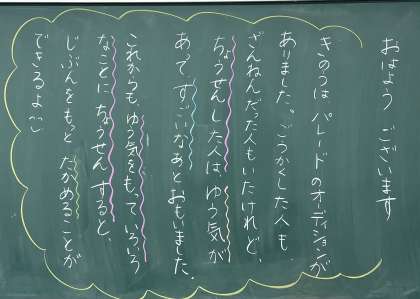 おはよう ございます
きのうは パレードのオーディションが
ありました。ごうかくした人も、
ざんねんだった人もいたけれど、
ちょうせんした人は ゆう気が
あって、すごいなあとおもいました。
これからも、ゆう気をもっていろいろ
なことに ちょうせんすると、
じぶんをもっと たかめることが
できるよ